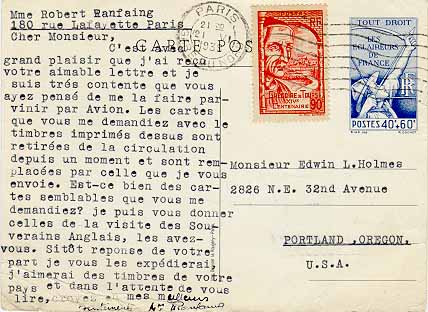 Mme Robert Ranfaing
180 rue Lafayette Paris
Cher Monsieur,
CARTE POS
C'est avec
grand plaisir que j'ai reçu
votre aimable lettre et je
suis trés contente que vous
ayez pensé de me la faire par-
venir par Avion. Les cartes
que vous me demandiez avec le
timbres imprimés dessus sont
retirées de la circulation
depuis un moment et sont rem-
placées par celle que je vous
envoie. Est-ce bien des car-
tes semblables que vous me
demandiez? je puis vous donner
celles de la visite des Sou-
verains Anglais, les avez-
vous. Sitôt reponse de votre
part je vous les expédierai
j'aimerai des timbres de votre
pays et dans l'attente de vous
lire, croyez en mes meilleurs
PARIS
21
GREGOIRE DE TOURS
XIVE
CENTENAIRE
90c
RF
TOUT DROIT
LES
ECLAIREURS
DE
FRANCE
RF
POSTES 40c+60c
Monsieur Edwin L.Holmes
2826 N.E. 32nd Avenue
PORTLAND, OREGON.
U.S.A.